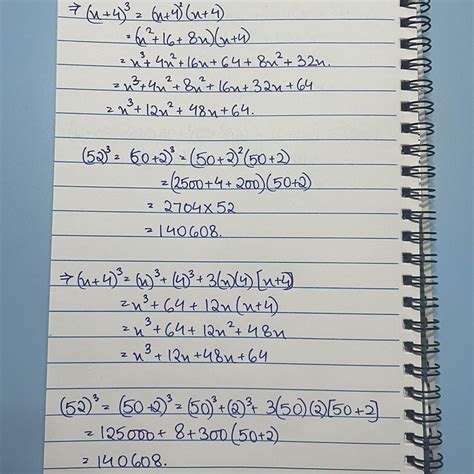 ⇒ (x+4)³ = (x+4)²(x+4)
= (x²+16+8x)(x+4)
= x³+4x²+16x+64+8x²+32x.
= x³+4x²+8x²+16x+32x+64
= x³+12x²+48x+64.
(52)³ = (50+2)³ = (50+2)²(50+2)
= (2500+4+200)(50+2)
= 2704×52
= 140608.
⇒ (x+4)³ = (x)³+(4)³+3(x)(4)[x+4]
= x³+64+12x(x+4)
= x³+64+12x²+48x
= x³+12x+48x+64
(52)³ = (50+2)³ = (50)³+(2)³+3(50)(2)[50+2]
= 125000+8+300(50+2)
= 140608.